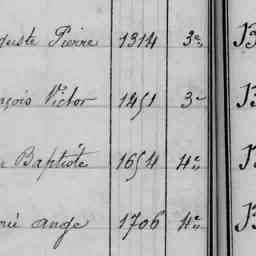 guste Pierre 1314 3e B
nçois Victor 1451 3e B
n Baptiste 1654 4e
oré ange 1706 4e B